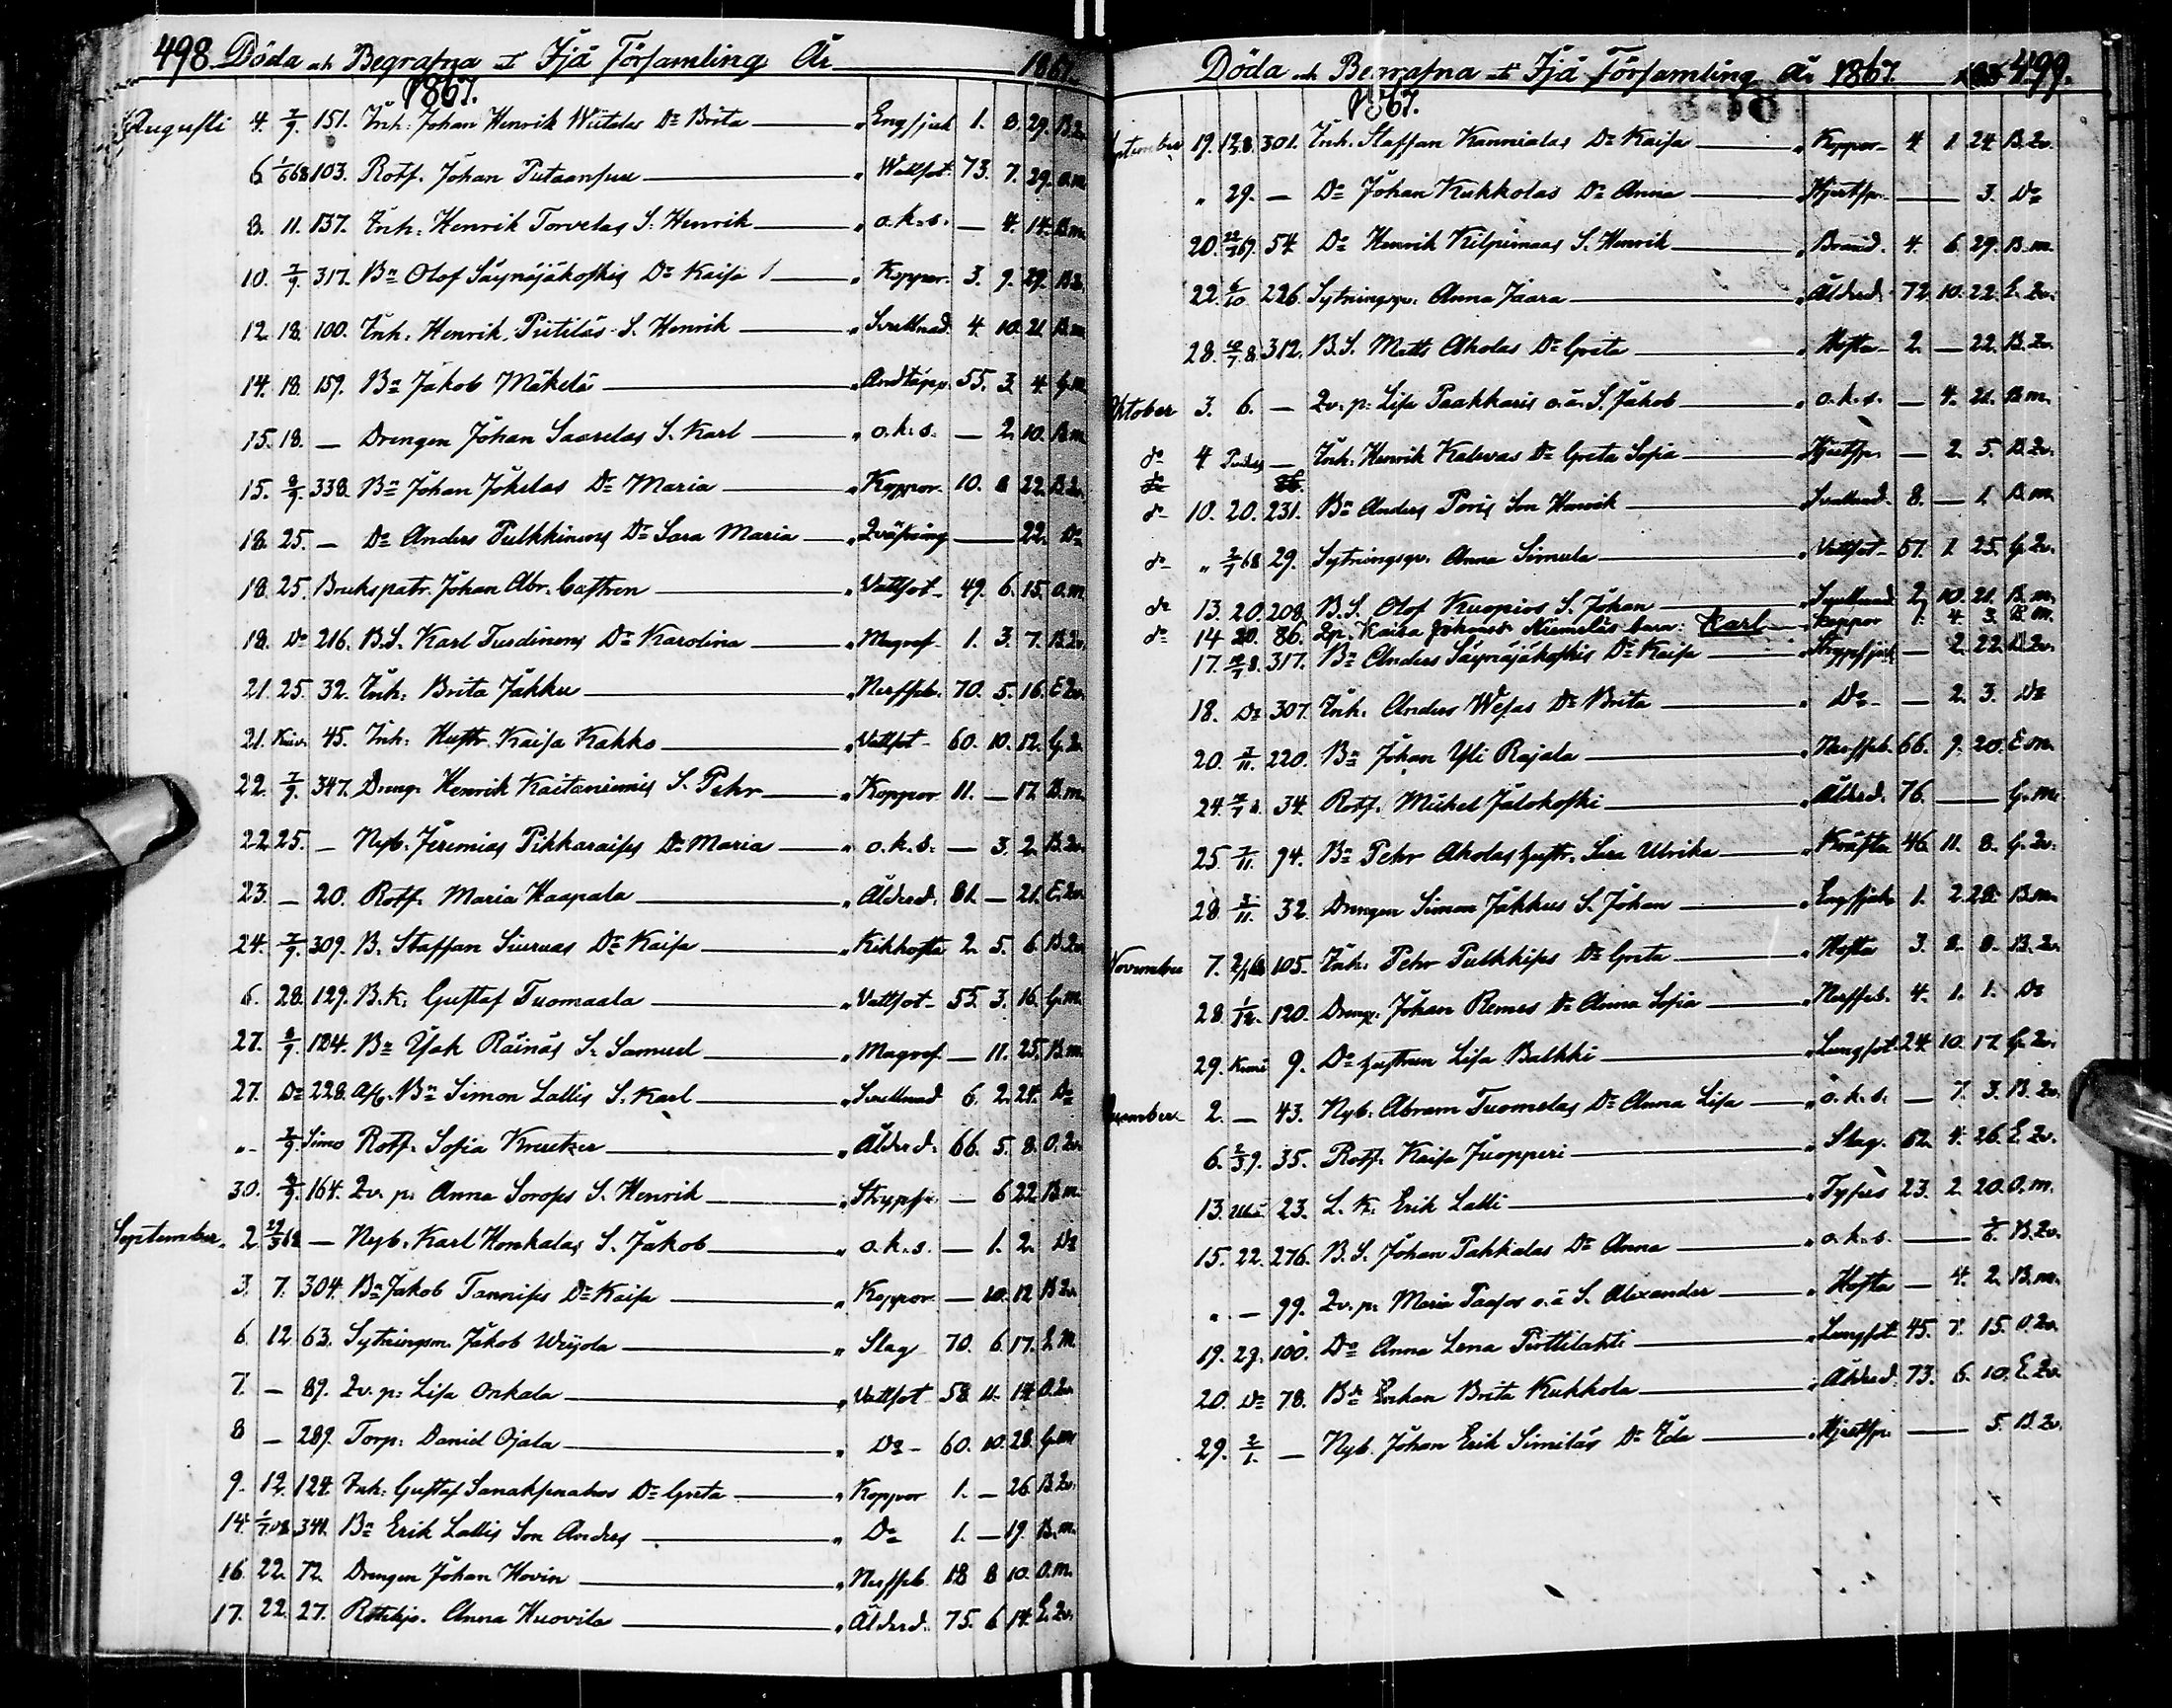 498. Döda och Begrafna uti Ijå Församling År 1867.
1867.
Augusti 4. 7/9. 151. Inh: Johan Henrik Wiitalas Dr Brita „ Engsjuk 1. 8. 29. B.Qv.
6. 1/6 68 103. Rotf. Johan Putaansuu „ Wattsot 73. 7. 29. O.m.
8. 11. 137. Inh: Henrik Torvelas S. Henrik „ o.k.s. — 4. 14. B.m.
10. 7/9. 317. Bn Olof Säynäjäkoskis Dr Kaisa „ Koppor 3. 9. 29. B.Qv.
12. 18. 100. Inh: Henrik Piitiläs S. Henrik „ Svullnad 4. 10. 21. B.m.
14. 18. 159. Bn Jakob Mäkelä „ Andtäpp. 55. 3. 4. G.m.
15. 18. — Drengen Johan Saarelas S. Karl „ o.k.s. — 2. 10. B.m.
15. 8/9. 338. Bn Johan Jokelas Dr Maria „ Koppor. 10. 8 22. B.Qv.
18. 25. — Do Anders Pulkkinens Dr Sara Maria „ Qväfning — 22. Do
18. 25. Brukspatr. Johan Abr. Castren „ Vattsot 49. 6. 15. O.m.
18. Do 216. B.S. Karl Turdinens Dr Karolina „ Magref 1. 3. 7. B.Qv.
21. 25. 32. Inh: Brita Jakku „ Nerffeb. 70. 5. 16. E.Qv.
21. Kuiv. 45. Inh: Hustr. Kaisa Kakko „ Vattsot 60. 10. 12. G.Qv.
22. 7/9. 347. Dreng. Henrik Kaitaniemis S. Pehr „ Koppor 11. — 17. B.m.
22. 25. — Nyb. Jeremias Pikkaraises Dr Maria „ o.k.s. — 3. 2. B.Qv.
23. — 20. Rotf. Maria Haapala „ Ålderd. 81. — 21. E.Qv.
24. 7/9. 309. B. Staffan Siuruas Dr Kaisa „ Kikhosta 2. 5. 6. B.Qv.
6. 28. 129. B.k. Gustaf Tuomaala „ Vattsot 55. 3. 16. G.m.
27. 8/9. 104. Bn Isak Räinäs S. Samuel „ Magref — 11. 25. B.m.
27. Do 228. Afs. Bn Simon Lallis S. Karl „ Svullnad 6. 2. 24. Do
„ 7/9. Simo Rotf. Sofia Kreutzer „ Ålderd. 66. 5. 8. O.Qv.
30. 8/9. 164. Qv. p. Anna Sorops S. Henrik „ Strypsj. — 6 22. B.m.
September. 2. 29/3 68 — Nyb. Karl Honkalas S. Jakob „ o.k.s. — 1. 2. Do
3. 7. 304. Bn Jakob Tannises Dr Kaisa „ Koppor — 10. 12 B.Qv.
6. 12. 63. Sytningsm. Jakob Wrijola „ Slag 70. 6. 17. E.M.
7. — 89. Qv. p: Lisa Onkala „ Vattsot 58 11. 14. O.Qv.
8 — 289. Torp: Daniel Ojala „ Do 60. 10. 28. G.m
9. 12. 124. Inh: Gustaf Sanaksenahos Dr Greta „ Koppor 1. — 26. B.Qv.
14. 341. Bn Erik Lallis Son Anders „ Do 1. — 19. B.m.
16. 22. 72. Drengen Johan Hovin „ Nerffeb. 18 8 10. O.m.
17. 22. 27. Rotehjo. Anna Huovila „ Ålderd. 75. 6 14. E.Qv.
Döda och Begrafna uti Ijå Församling År 1867. 499.
1867.
September 19. 301. Inh. Staffan Kannialas Dr Kaisa „ Koppor 4. 1. 24. B.Qv.
„ 29. — Do Johan Kukkolas Dr Anna „ Hjertspr. — 3. Do
20. 54. Do Henrik Kilpimaas S. Henrik „ Bränd. 4. 6. 29. B.m.
22. 6/10 226. Sytningsqv. Anna Jaara „ Ålderd. 72. 10. 22. E.Qv.
28. 312. B.S. Matts Aholas Dr Greta „ Hosta 2. — 22. B.Qv.
Oktober 3. 6. — Qv. p: Lisa Paakkaris o.ä. S. Jakob „ o.k.s. — 4. 21. B.m.
do 4. — Inh: Henrik Kalevas Dr Greta Sofia „ Hjertspr. — 2. 5. B.Qv.
do 10. 20. 231. Bn Anders Poris Son Henrik „ Svullnad. 8. — 1. B.m.
do „ 2/1 68 29. Sytningsqv. Anna Simula „ Vattsot 57. 1. 25. G.Qv.
do 13. 20. 208. B.S. Olof Kuopios S. Johan „ Svullnad 2. 10. 21. B.m.
do 14 20. 86. Qp. Kaisa Johansd. Niemeläs barn: Karl „ Koppor 1. 4. 3. B.m.
17. 317. Bn Anders Säynäjäkoskis Dr Kaisa „ Strypsjuk — 2. 22. B.Qv.
18. Do 307. Inh. Anders Wesas Dr Brita „ Do — 2. 3. Do
20. 3/11. 220. Bn Johan Yli Rajala „ Nerffeb. 66. 9. 20. E.m.
24. 34. Rotf. Mickel Jalokoski „ Ålderd. 76. — G.m.
25. 3/11. 94. Bn Pehr Aholas hustr. Sara Ulrika „ Kräfta 46. 11. 8. G.Qv.
28. 3/11. 32. Drengen Simon Jakkus S. Johan „ Engsjuk 1. 2. 28. B.m.
November 7. 105. Inh: Pehr Pulkkises Dr Greta „ Hosta 3. 8. 8. B.Qv.
28. 1/12. 120. Dreng. Johan Remes Dr Anna Sofia „ Nerffeb. 4. 1. 1. Do
29. Kemi 9. Do hustrun Lisa Balkki „ Lungsot 24. 10. 17. G.Qv.
December 2. — 43. Nyb. Abram Tuomelas Dr Anna Lisa „ o.k.s. — 7. 3. B.Qv.
6. 35. Rotf. Kaisa Juopperi „ Slag. 62. 4. 26. E.Qv.
13. 23. L.K. Erik Lalli „ Tyfus 23. 2. 20. O.m.
15. 22. 276. B.S. Johan Pahkalas Dr Anna „ o.k.s. — B.Qv.
„ — 99. Qv. p: Maria Paasos o.ä. S. Alexander „ Hosta — 4. 2. B.m.
19. 29. 100. Do Anna Lena Pirttilahti „ Lungsot 45. 7. 15. O.Qv.
20. Do 78. Bde Enkan Brita Kukkola „ Ålderd. 73. 6. 10. E.Qv.
29. 2/1. — Nyb. Johan Erik Similäs Dr Ida „ Hjertspr. — 5. B.Qv.